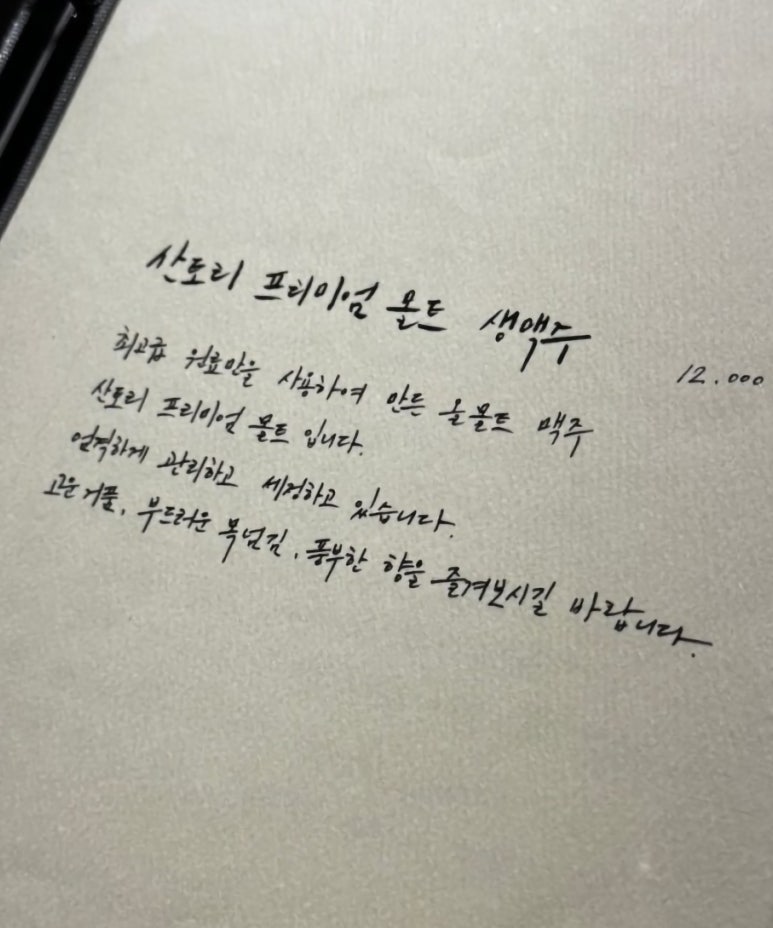 산토리 프리미엄 몰트 생맥주
12.000
최고급 원료만을 사용하여 만든 올몰트 맥주
산토리 프리미엄 몰트 입니다.
엄격하게 관리하고 세정하고 있습니다.
고운 거품, 부드러운 목넘김, 풍부한 향을 즐겨보시길 바랍니다.